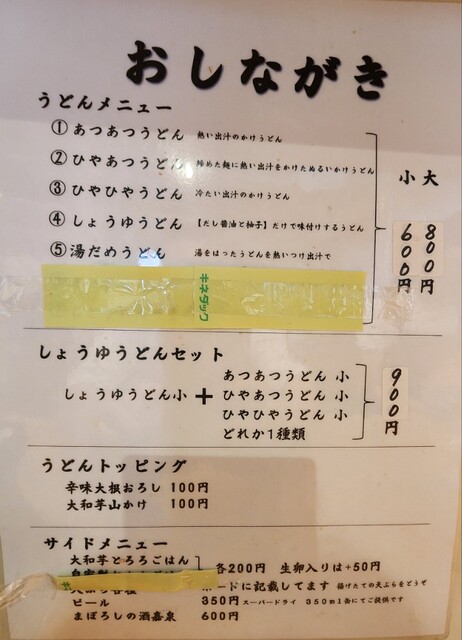 おしながき
うどんメニュー
① あつあつうどん 熱い出汁のかけうどん
② ひやあつうどん 締めた麺に熱い出汁をかけたぬるいかけうどん
③ ひやひやうどん 冷たい出汁のかけうどん
④ しょうゆうどん 【だし醤油と柚子】だけで味付けするうどん
⑤ 湯だめうどん 湯をはったうどんを熱いつけ出汁で
小 大
600円 800円
キネダック
しょうゆうどんセット
しょうゆうどん小 + あつあつうどん 小
ひやあつうどん 小
ひやひやうどん 小
どれか1種類
900円
うどんトッピング
辛味大根おろし 100円
大和芋山かけ 100円
サイドメニュー
大和芋とろろごはん
各200円 生卵入りは+50円
ードに記載してます 揚げたての天ぷらをどうぞ
ビール 350円 スーパードライ 350ml缶にてご提供です
まぼろしの酒嘉泉 600円